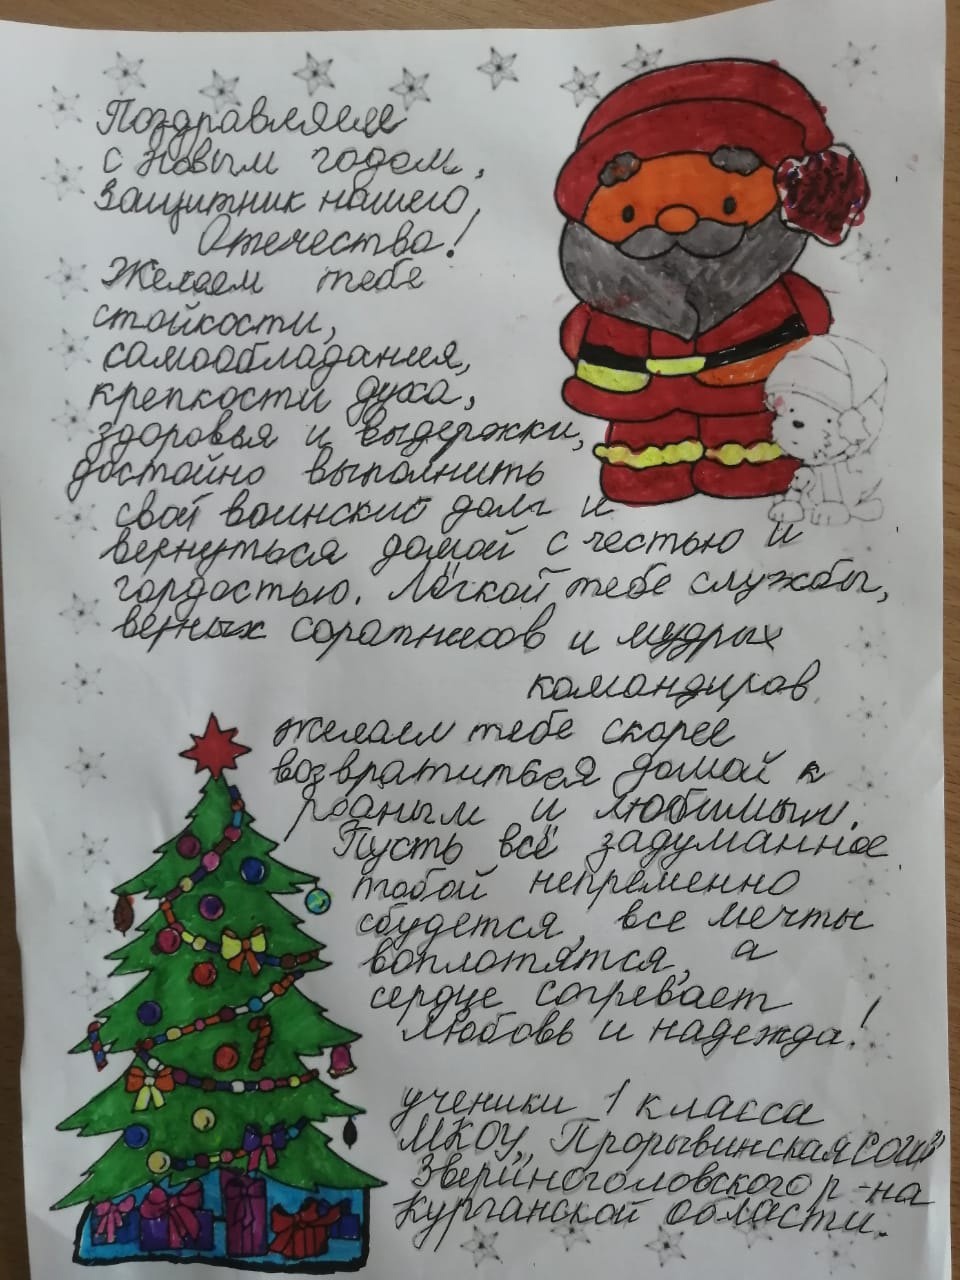 Поздравляем
с Новым годом,
Защитник нашего
Отечества!
Желаем тебе
стойкости,
самообладания,
крепкости духа,
здоровья и выдержки,
достойно выполнить
свой воинский долг и
вернуться домой с честью и
гордостью. Лёгкой тебе службы,
верных соратников и мудрых
командиров
Желаем тебе скорее
возвратиться домой к
родным и любимым.
Пусть всё задуманное
тобой непременно
сбудется, все мечты
воплотятся, а
сердце согревает
любовь и надежда!
ученики 1 класса
МКОУ "Прорывинская СОШ"
Звериноголовского р-на
Курганской области.